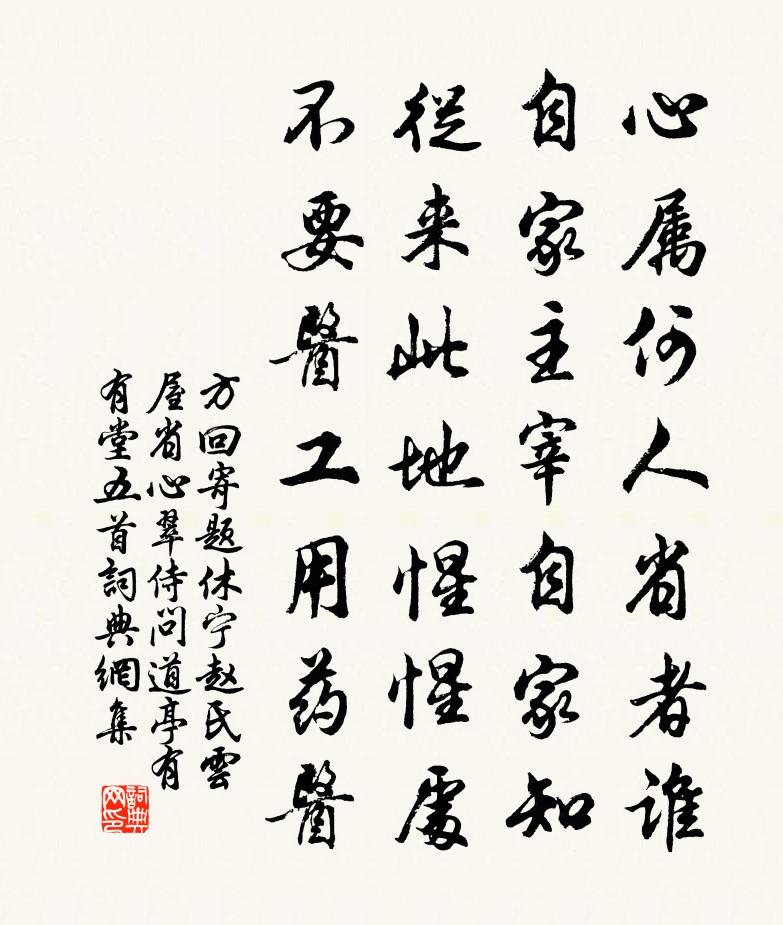 心属何人省者谁
自家主宰自家知
從来此地惺惺處
不要醫工用药醫
方回寄题休宁赵氏雲
屋省心翠侍问道亭有
有堂五首詞典網集
詞典网印